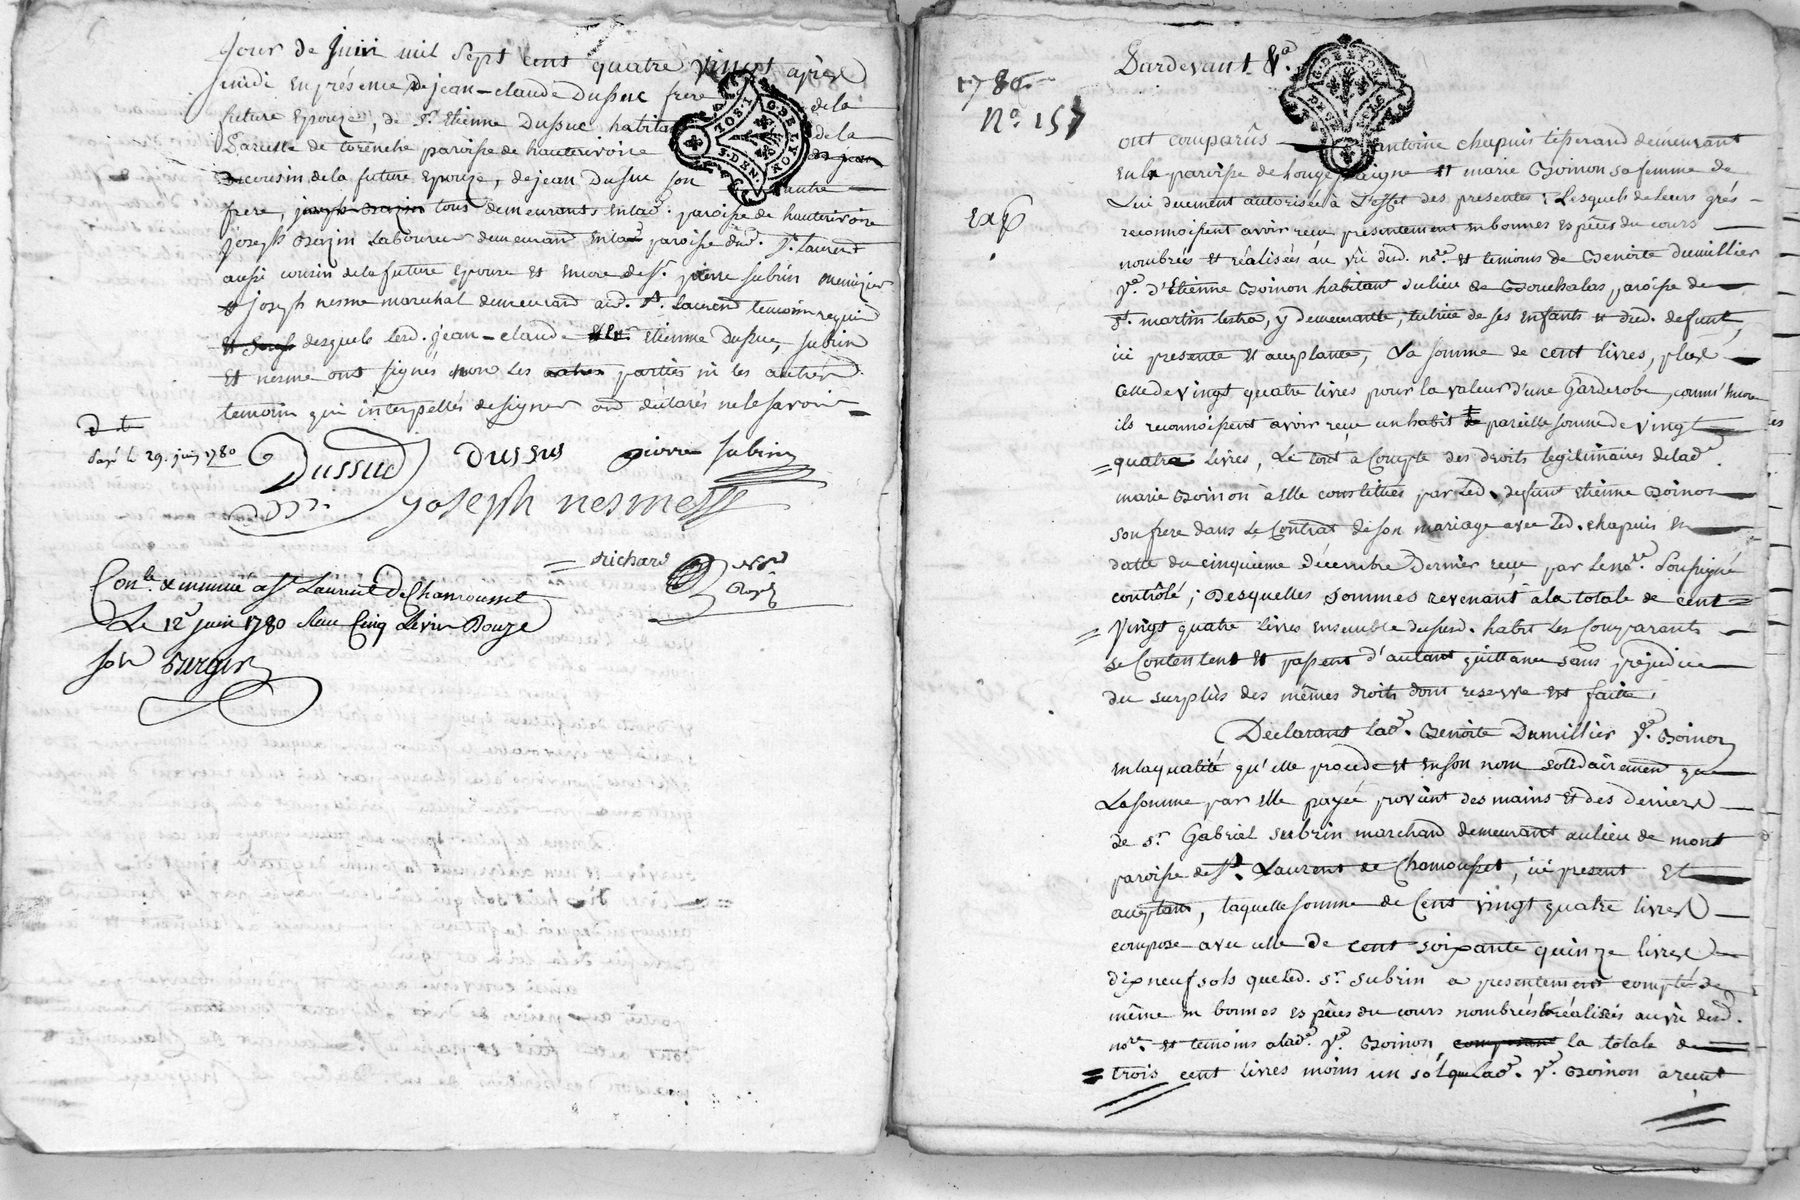 jour de Juin mil sept cent quatre vingt après
midi en présence de jean-claude Dussuc frere de la
future Epouze, de Sr. Etienne Dussuc habitant de la
Parcelle de torenche paroisse de hauterivoire
cousin de la future Epouze, de jean Dussuc son autre
frere, tous demeurants en lad. paroisse de hauterivoire
joseph Bazin Laboureur demeurand en la paroisse dud. St. Laurent
aussi cousin de la future Epouse et encore de Sr. pierre subrin menuizier
& joseph nesme marechal demeurand aud. St. Laurend temoins requis
desquels lesd. jean-claude Etienne Dussuc, subrin
et nesme ont signés non les parties ni les autres
temoins qui interpellés de signer ont déclarés ne le savoir
payé le 29. juin 1780
Dussuc Dussus pierre subrin
joseph nesme
richard
Con.lé & insinué à St Laurent De Chamousset
Le 12e juin 1780 Reçu Cinq Livres Douze
sols
G. DE LYON
1780
No. 157
Exp
Pardevant &a
G. DE LYON
ont comparûs antoine chapuis tisserand demeurant
en la paroisse de et marie Goinon sa femme de
Lui duement autorisée à l'effet des présentes; Lesquels de leurs grés
reconnoissent avoir reçu présentement en bonnes espèces du cours
nombrées et réalisées au vû dud. nre. et temoins de Benoite Dumillier
ve. d'Etienne Goinon habitant du lieu de paroisse de
St. martin lestra, y demeurante, tutrice de ses enfants et dud. defunt,
ici presente et acceptante, La somme de cent livres, plus
celle de vingt quatre livres pour la valeur d'une Garderobe, comm' encore
ils reconnoissent avoir reçu un habit pareille somme de vingt
quatre livres, Le tout à Compte des droits legitimaires de lad.
marie Goinon à Elle constitués par led. defunt Etienne Goinon
son frere dans Le Contrat de son mariage avec led. chapuis en
datte du cinquieme décembre dernier reçu par le nre. soussigné
contrôlé; Desquelles sommes revenant à la totale de cent
vingt quatre livres ensemble dususd. habit les Comparants
se Contentent et passent d'autant quittance sans préjudice
du surplus des mêmes droits dont reserve est faite,
Déclarant lad. Benoite Dumillier ve. Goinon
en la qualité qu'elle procede et en son nom solidairement que
La somme par Elle payée provient des mains et des deniers
de sr. Gabriel subrin marchand demeurant au lieu de mont
paroisse de St. Laurent de Chamousset, ici present et
acceptant, laquelle somme de Cent vingt quatre livres
compose avec celle de cent soixante quinze livres
dixneuf sols que led. sr. subrin a presentement compté de
même en bonnes espèces du cours nombrées & réalisées au vû desd.
nre. et temoins à lad. ve. Goinon, la totale de
trois cent livres moins un sol que lad. ve. Goinon a reçut